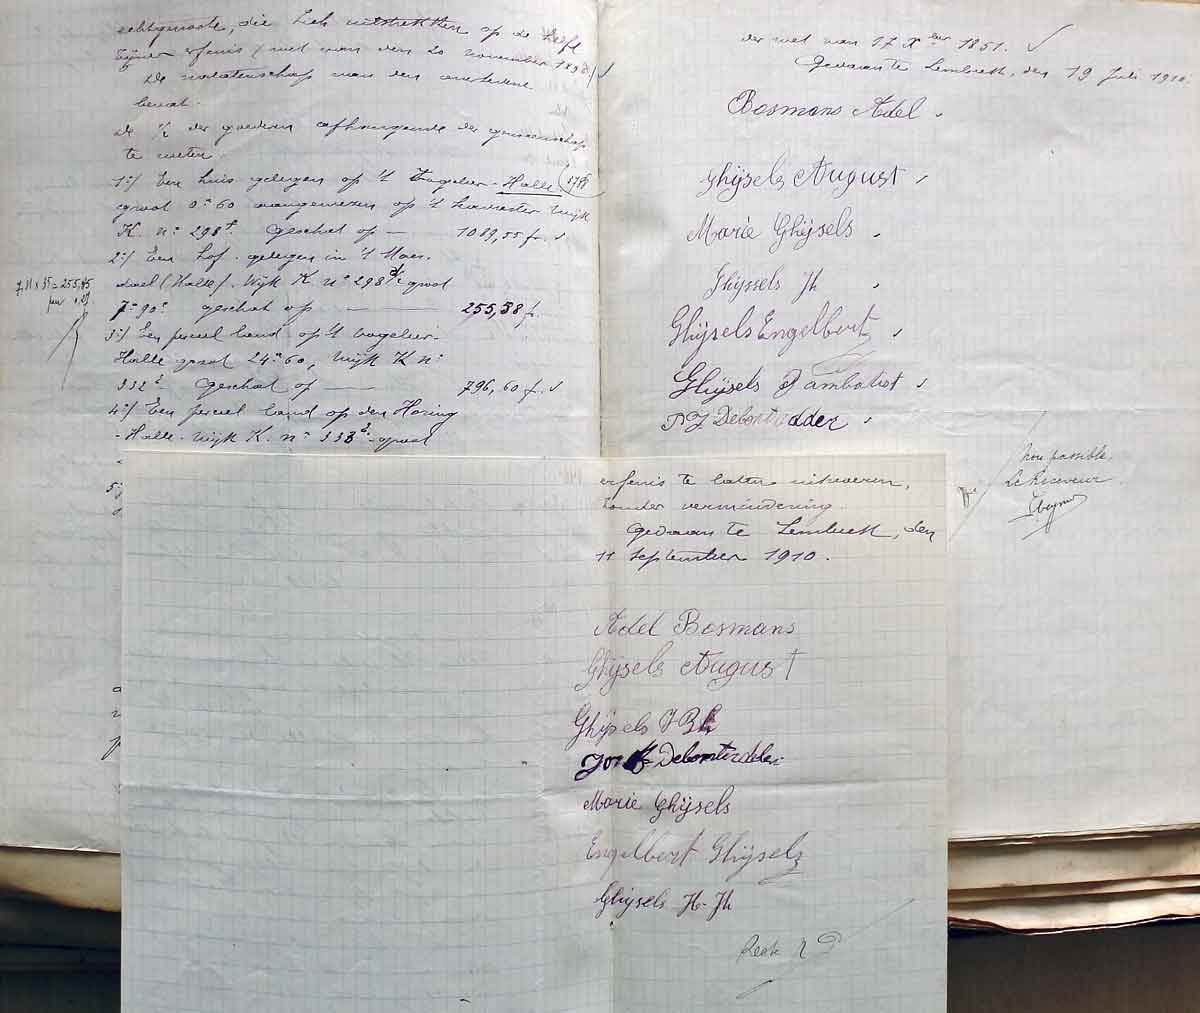 echtgenoote, die zich uitstrekken op de helft
zijner erfenis (wet van den 20 november 1896)
De nalatenschap van den overledene
bevat:
De 1/2 der goederen afhangende der gemeenschap
te weten:
1º/ Een huis gelegen op 't Vogelier - Halle
groot 0ª 60 aangewezen op 't kadaster Wijk
K. nº 298 geschat op — 1089,55 f.
2º/ Een hof gelegen in 't
dael (Halle). Wijk K. nº 298 groot
7ª 90 geschat op — 255,58 f.
3º/ Een perceel land op 't Vogelier-
Halle groot 24ª 60, Wijk K nº
332 Geschat op — 796,60 f.
4º/ Een perceel land op den Horing
- Halle - Wijk K. nº 338 groot
5º/
der wet van 17 Xber 1851.
Gedaan te Lembeek, den 19 Juli 1910.
Bosmans Adel
Ghijsels August
Marie Ghijsels
Ghijssels Jh
Ghijsels Engelbert
Ghijsels Jambatist
P J Debontridder
Non passible.
Le Receveur
erfenis te laten uitvoeren,
zonder vermindering.
Gedaan te Lembeek, den
11 September 1910.
Adel Bosmans
Ghijsels August
Ghijsels J B
Debontridder
Marie Ghijsels
Engelbert Ghijsels
Ghijsels H-Jh